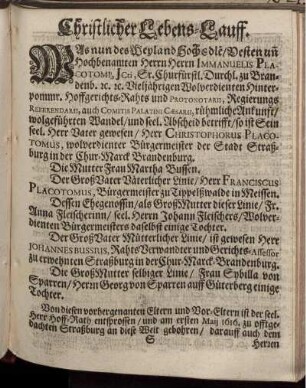 Christlicher Lebens-Lauff.
WAs nun des Weyland Hochedle/ Vesten uñ
Hochbenanten Herrn Herrn IMMANUELIS PLA-
COTOMI, JCti, Sr. Churfürstl. Durchl. zu Bran-
denb. ꝛc. ꝛc. Vieljährigen Wolverdienten Hinter-
pommr. Hoffgerichts-Rahts und PROTONOTARII, Regierungs
REFERENDARII, auch COMITIS PALATINI CÆSARII, rühmliche Ankunft/
wolgeführten Wandel/ und seel. Abscheid betrifft/ so ist Sein
seel. Herr Vater gewesen/ Herr CHRISTOPHORUS PLACO-
TOMUS, wolverdienter Bürgemeister der Stadt Straß-
burg in der Chur-Marck Brandenburg.
Die Mutter Frau Martha Bussen.
Der Groß Vater Väterlicher Linie/ Herr FRANCISCUS
PLACOTOMUS, Bürgemeister zu Tippelßwald in Meissen.
Dessen Ehegenossin/ als Groß Mutter dieser Linie/ Fr.
Anna Fleischerinn/ seel. Herrn Johann Fleischers/ Wolver-
dienten Bürgemeisters daselbst einige Tochter.
Der Groß Vater Mütterlicher Linie/ ist gewesen Herr
JOHANNES BUSSIUS, Rahts Verwandter und Gerichts-Assessor
zu erwehnten Straßburg in der Chur Marck Brandenburg.
Die Groß Mutter selbiger Linie/ Frau Sybilla von
Sparren/ Herrn Georg von Sparren auff Güterberg einige
Tochter.
Von diesen vorhergenanten Eltern und Vor-Eltern ist der seel.
Herr Hoff-Raht entsprossen/ und am ersten Maij 1616. zu offtge-
dachten Straßburg an diese Welt gebohren/ darauff auch dem
S
Herren